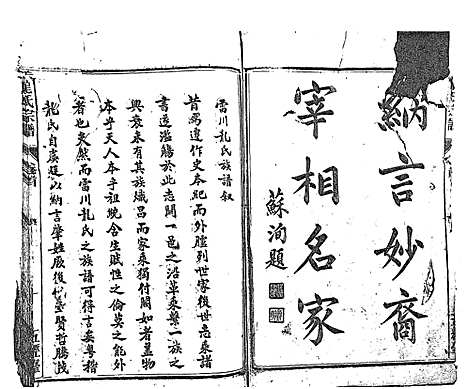 納言妙裔
宰相名家
蘇洵題
雷川龍氏族譜叙
昔馬遷作史本紀而外臚列世家後世志乘諸
書遂濫觴於此志聞一邑之沿革乘聲一族之
興衰未有其族熾昌而家乘獨付闕如者蓋物
本乎天人本乎祖紀含生賦性之倫莫之能外
者也矣然而雷川龍氏之族譜可得言矣粵稽
龍氏自虞廷以納言肇姓厥後代毓賢哲
氏宗譜
卷首